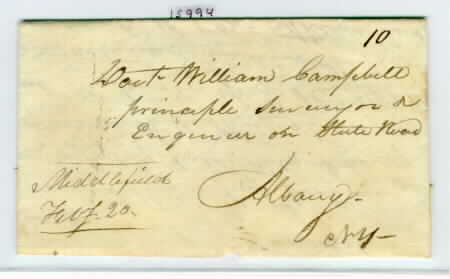 15994
10
Doct William Campbell
principle Surveyor &
Engineer on State Road
Middlefield
Feby. 20.
Albany
NY